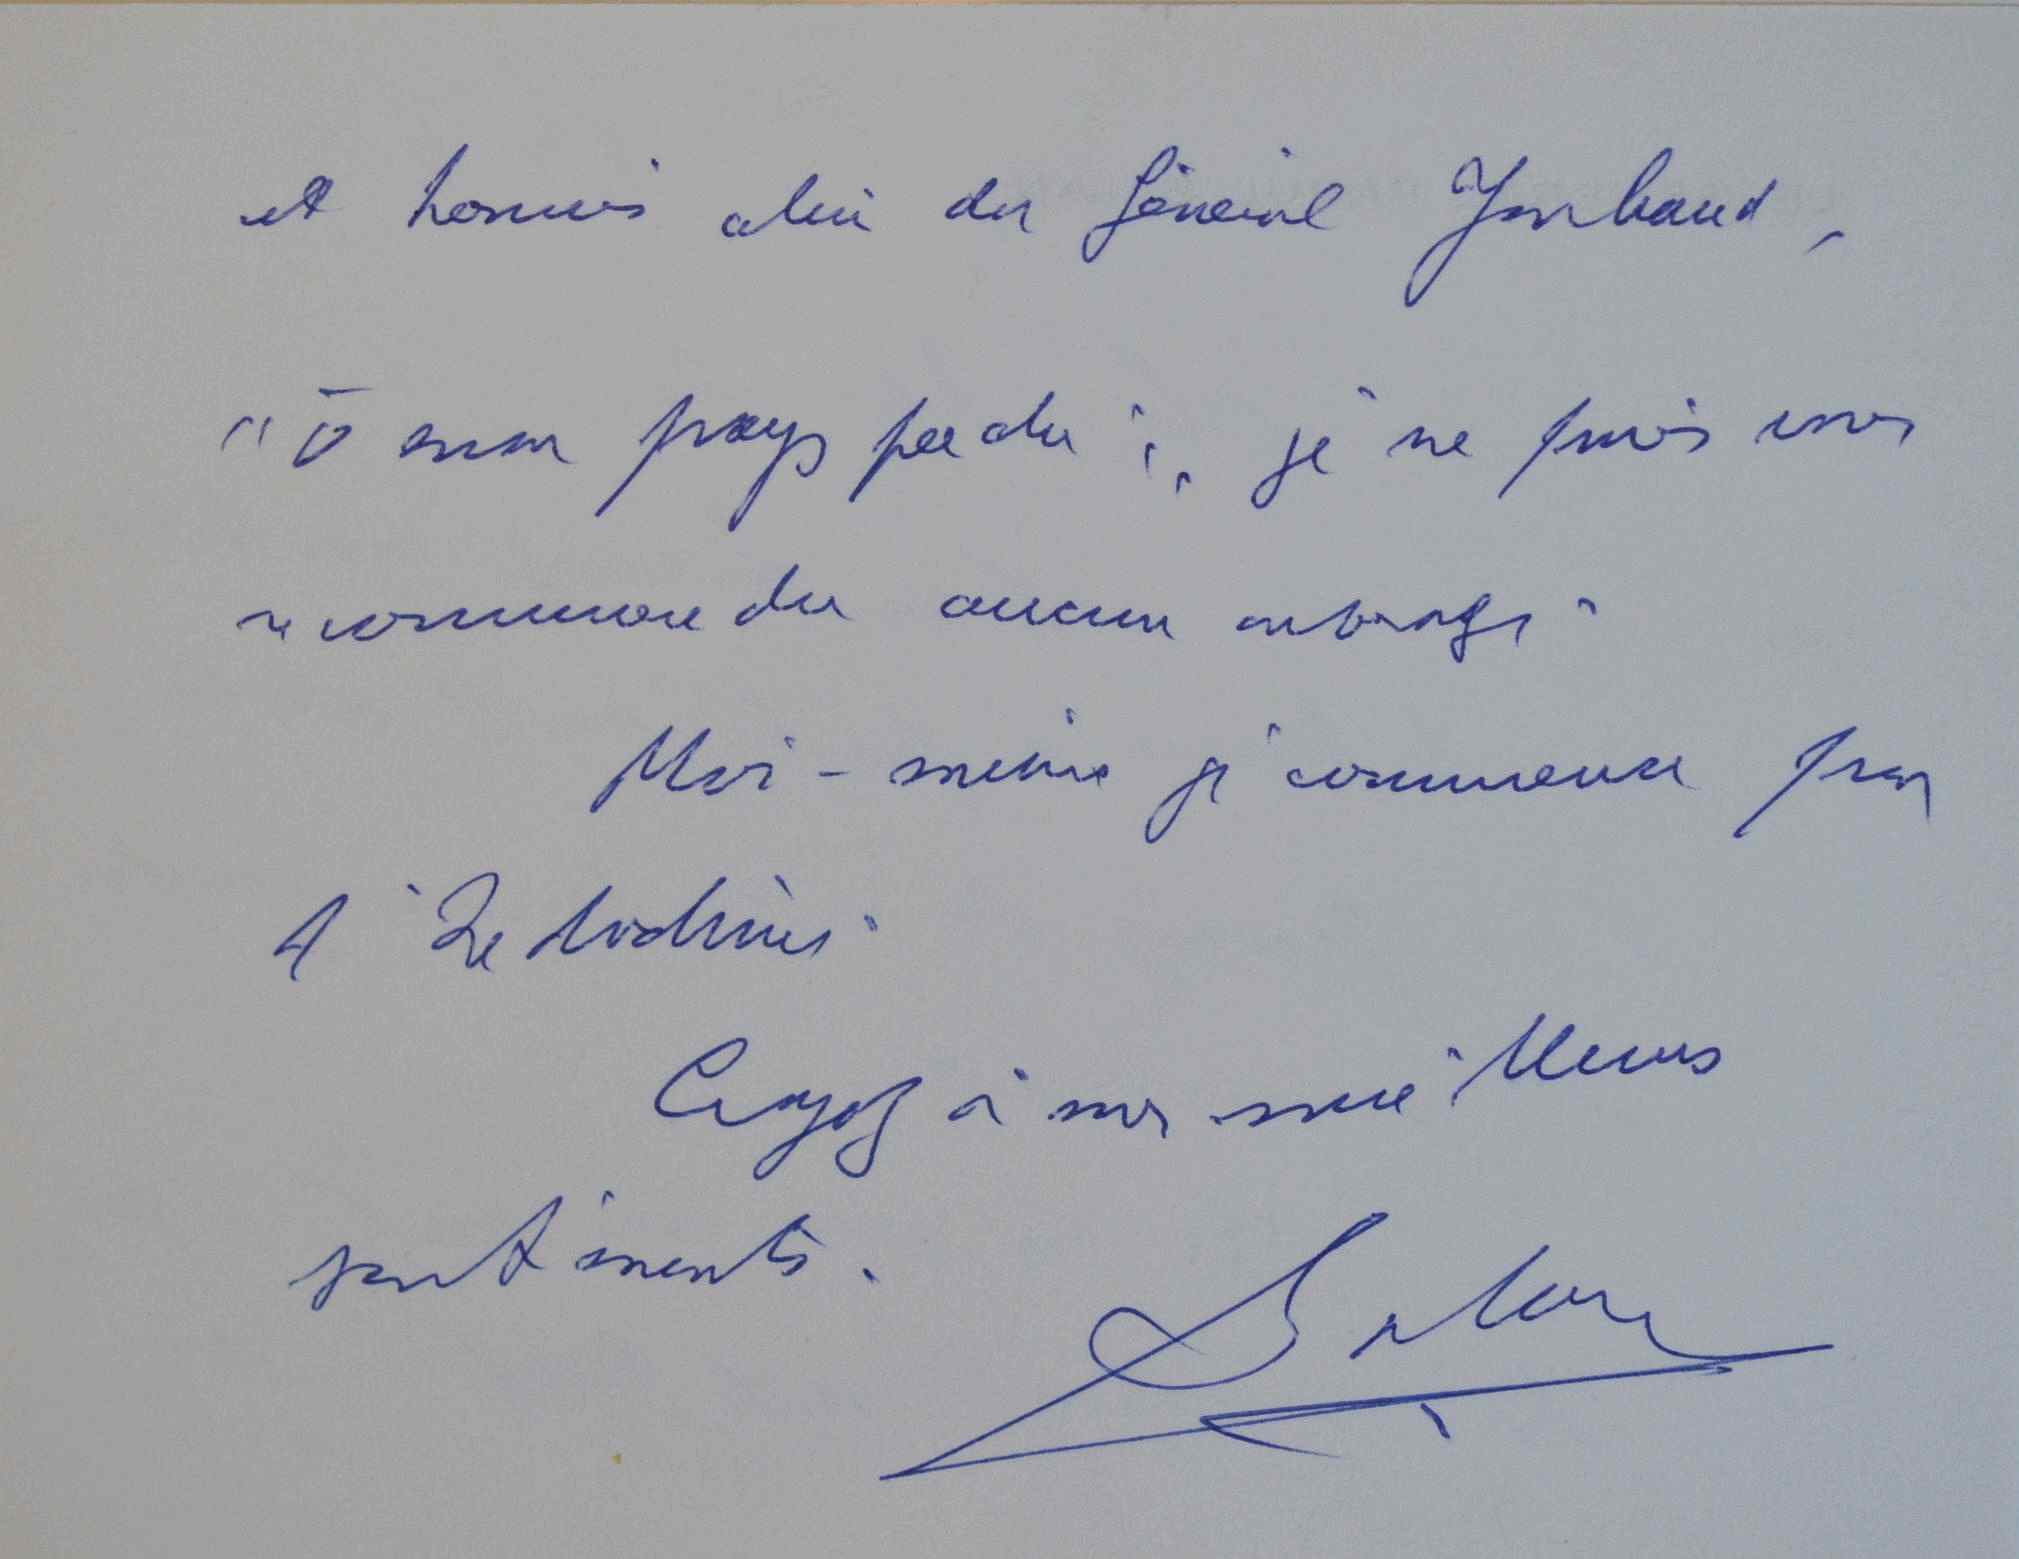 et hormis celui du Général Jouhaud,
"ô mon pays perdu", je ne puis vous
recommander aucun ouvrage.
Moi-même je commence par
Croyez à mes meilleurs
sentiments.
Salan